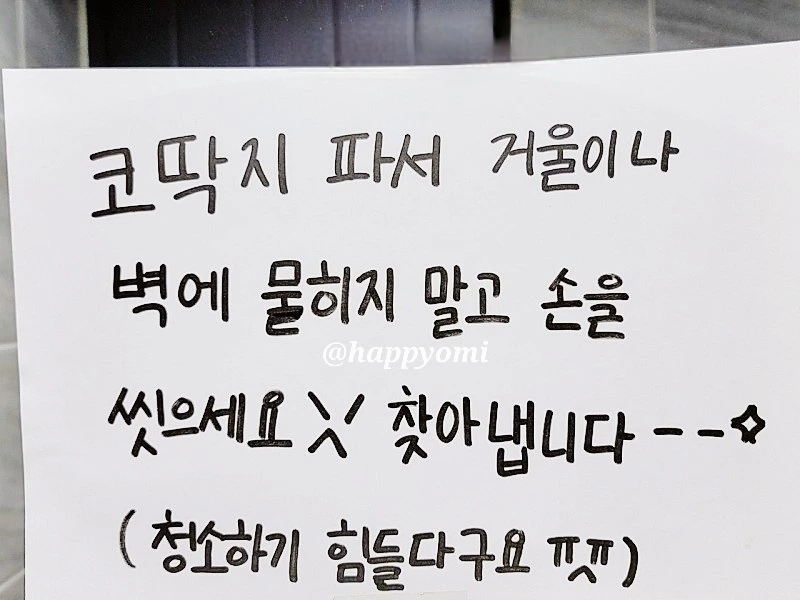 코딱지 파서 거울이나
벽에 묻히지 말고 손을
@happyomi
씻으세요 찾아냅니다 --✧
(청소하기 힘들다구요 ㅠㅅㅠ)